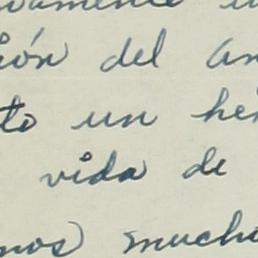 vamente
ión del an
to un he
vida de
mos mucho